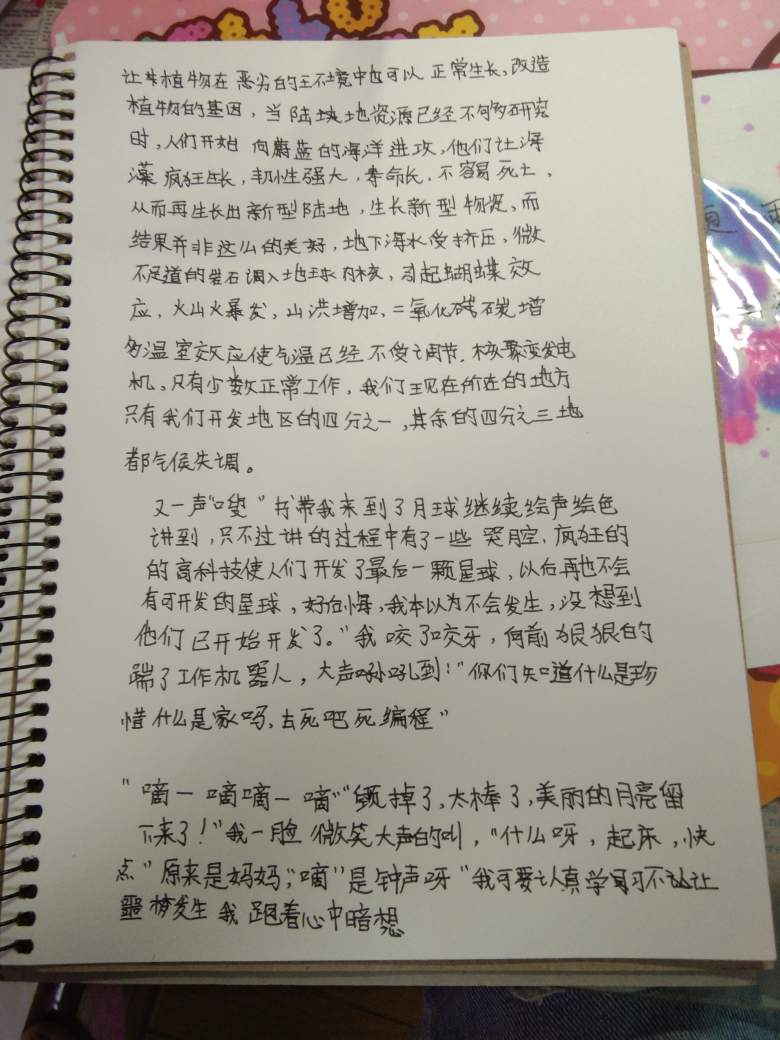 让植物在恶劣的环境中也可以正常生长,改造
植物的基因,当陆块地资源已经不够多研究
时,人们开始向蔚蓝的海洋进攻,他们让海
藻疯狂生长,韧性强大,寿命长,不容易死亡,
从而再生长出新型陆地,生长新型物资,而
结果并非这么的美好,地下海水受挤压,微
不足道的岩石调入地球内核,引起蝴蝶效
应,火山火暴发,山洪增加,二氧化碳增
多温室效应使气温已经不受调节.核聚变发电
机,只有少数正常工作,我们现在所在的地方
只有我们开发地区的四分之一,其余的四分之三地
都气候失调。
又一声"嗖"书带我来到了月球继续绘声绘色
讲到,只不过讲的过程中有了一些哭腔,疯狂的
的高科技使人们开发了最后一颗星球,以后再也不会
有可开发的星球,好后悔,我本以为不会发生,没想到
他们已开始开发了。"我咬了咬牙,向前狠狠的
踹了工作机器人,大声吼到:"你们知道什么是珍
惜什么是家吗,去死吧死编程"
"嘀一嘀嘀一嘀""毁掉了,太棒了,美丽的月亮留
下来了!"我一脸微笑大声的叫,"什么呀,起床,快
点"原来是妈妈,"嘀"是钟声呀"我可要认真学习不让
噩梦发生我跑着心中暗想